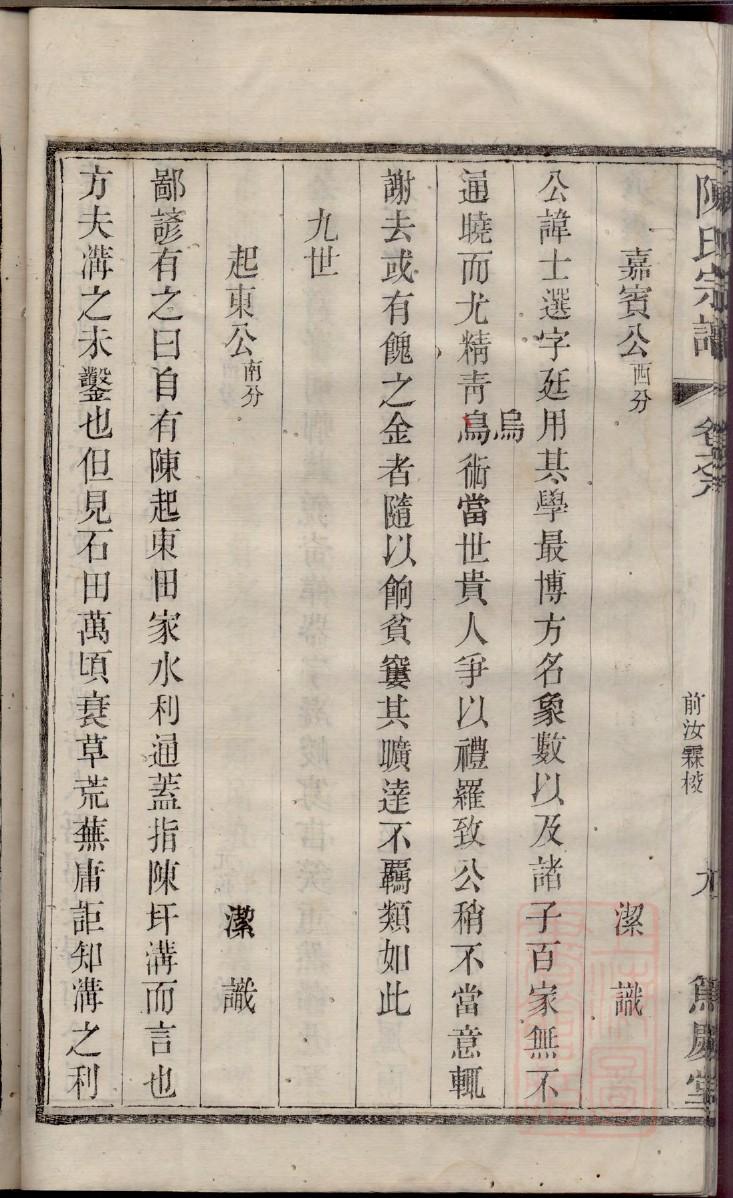 陳氏宗譜
卷六
前汝霖棱
九
篤慶堂
嘉賓公西分 潔識
公諱士選字廷用其學最博方名象數以及諸子百家無不
通曉而尤精靑鳥術當世貴人爭以禮羅致公稍不當意輒
烏
謝去或有餽之金者隨以餉貧窶其曠達不羈類如此
九世
起東公南分 潔識
鄙諺有之曰自有陳起東田家水利通蓋指陳圩溝而言也
方夫溝之未鑿也但見石田萬頃衰草荒蕪庸詎知溝之利